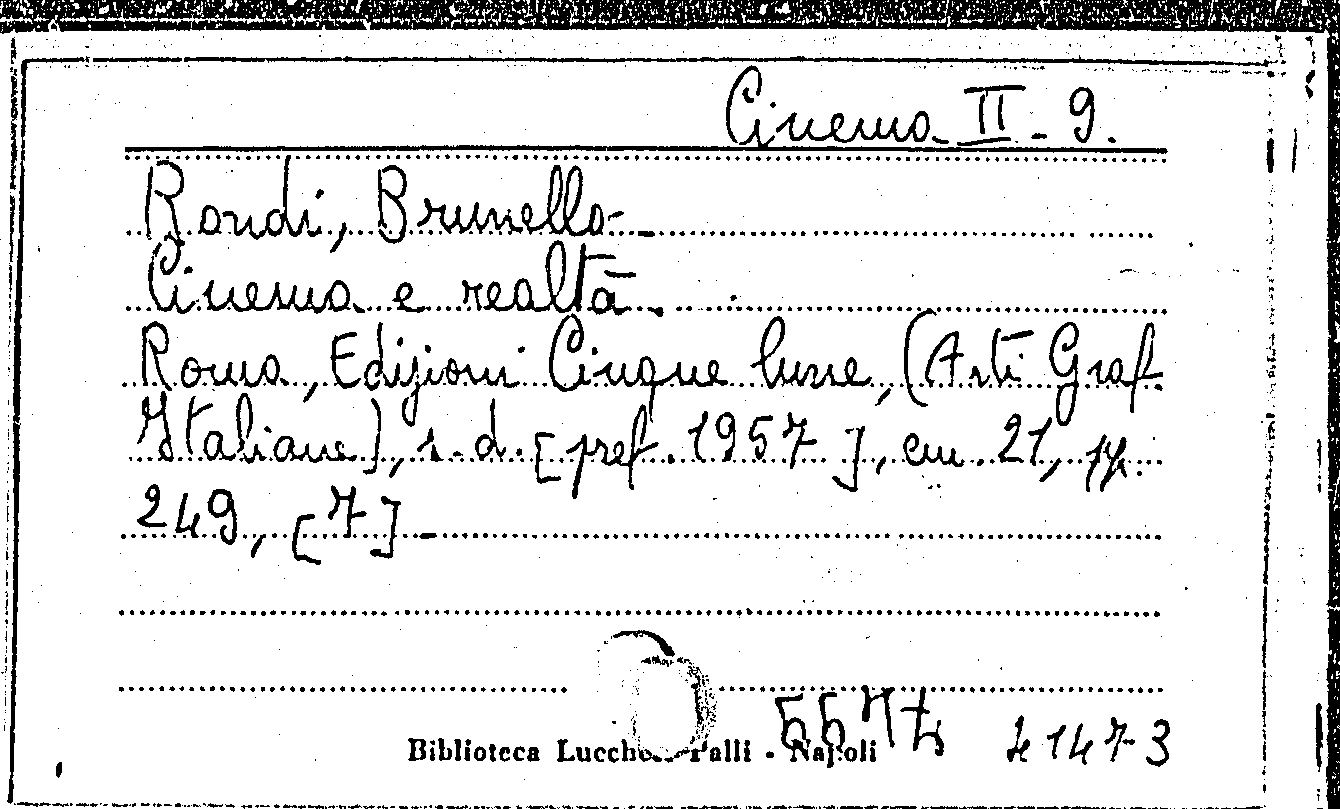 Cinema II - 9.
Rondi, Brunello -
Cinema e realtà.
Roma, Edizioni Cinque lune, (Arti Graf.
Italiane), s. d. [pref. 1957], cm. 21, pp.
249, [7] -
Biblioteca Palli - Napoli